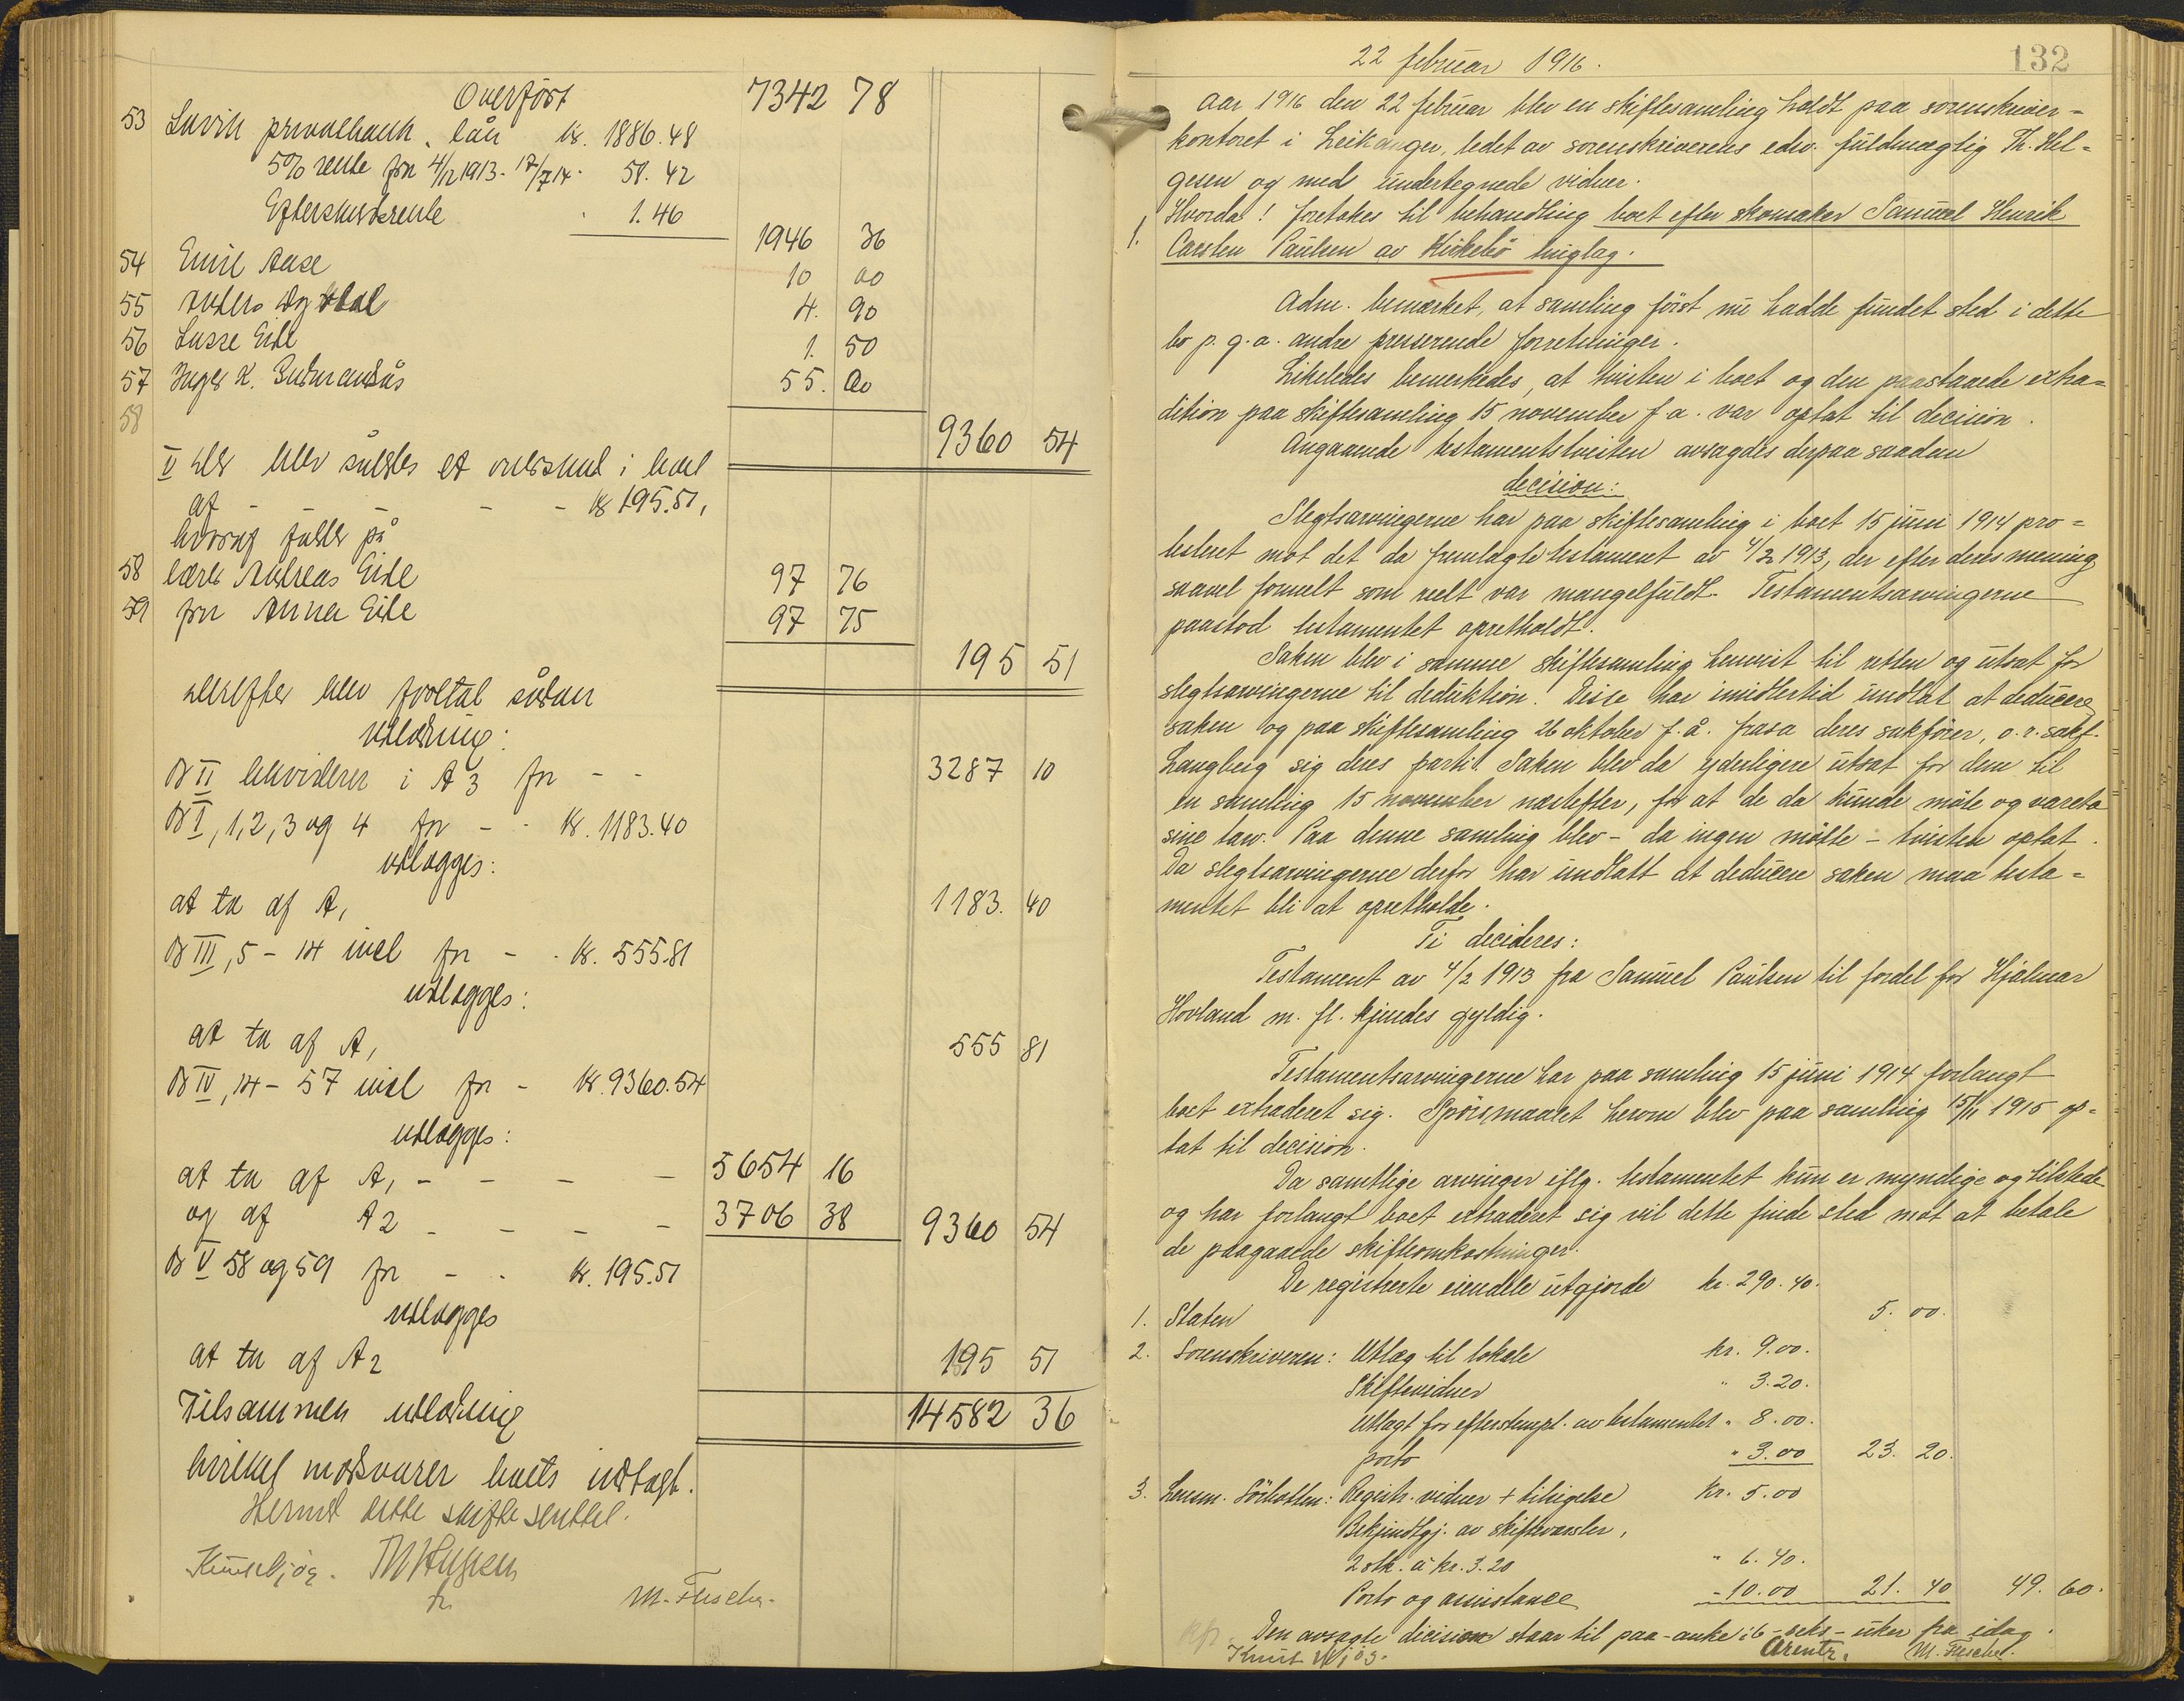 Overført 7342 78
53 Lavik privatbank, lån kr. 1886.48
5% rente fra 4/12 1913 - 17/7 14 - 58.42
Efterskudsrente 1.46
1946 36
54 Emil Aase 10 00
55 Anders 4. 90
56 Lasse Eide 1. 50
57 Inger K. 55. 00
58
9360 54
V Der blev således et overskud i boet
af - - - - kr 195.51,
hvoraf falder på
58 lærer Andreas Eide 97 76
59 fru Anna Eide 97 75
195 51
Derefter blev foretat sådan
utlodning:
B II likviderer i A 3 for - - 3287 10
B I, 1, 2, 3 og 4 for - - kr. 1183.40
utlægges:
at ta af A 1 1183. 40
B III, 5 - 14 incl for - - kr. 555.81
utlægges:
at ta af A 1 555 81
B IV, 14 - 57 incl for - kr. 9360.54
utlægges:
at ta af A 1 - - - - 5654 16
og af A 2 - - - - 3706 38 9360 54
B V 58 og 59 for - - kr. 195.51
utlægges
at ta af A 2 195 51
Tilsammen utlodning 14582 36
hvilket modsvarer boets indtægt.
Hermed dette skifte sluttet.
Th Helgesen
fm
M. Fischer.
132
22 februar 1916.
Aar 1916 den 22 februar blev en skiftesamling holdt paa sorenskriver-
kontoret i Leikanger, ledet av sorenskriverens edsv. fuldmægtig Th. Hel-
gesen og med undertegnede vidner.
Hvorda! foretokes til behandling boet efter skomaker Samuel Henrik
1. Carsten Paulsen av Kirkebø tinglag.
Adm. bemerket, at samling först nu hadde fundet sted i dette
bo p. g. a. andre presserende forretninger.
Likeledes bemerkedes, at tvisten i boet og den paastaaede extra-
dition paa skiftesamling 15 november f. a. var optat til decision.
Angaaende testamentstvisten avsagdes derpaa saadan
decision:
Slegtsarvingerne har paa skiftesamling i boet 15 juni 1914 pro-
testeret mot det da fremlagte testament av 4/2 1913, der efter deres mening
saavel formelt som reelt var mangelfuldt. Testamentsarvingerne
paastod testamentet opretholdt.
Saken blev i samme skiftesamling henvist til retten og utsat for
slegtsarvingerne til deduktion. Disse har imidlertid undlat at deducere
saken og paa skiftesamling 26 oktober f. å. frasa deres sakförer, o. r. sakf.
Langberg sig deres parti. Saken blev da yderligere utsat for dem til
en samling 15 november næstefter, for at de da kunde möte og vareta
sine tarv. Paa denne samling blev - da ingen mötte - tvisten optat.
Da slegtsarvingerne derfor har undlatt at deducere saken maa testa-
mentet bli at opretholde.
Ti decideres:
Testament av 4/2 1913 fra Samuel Paulsen til fordel for Hjalmar
Hovland m. fl. kjendes gyldig.
Testamentsarvingerne har paa samling 15 juni 1914 forlangt
boet extraderet sig. Spörsmaalet herom blev paa samling 15/11 1915 op-
tat til decision.
Da samtlige arvinger iflg. testamentet kun er myndige og tilstede
og har forlangt boet extraderet sig vil dette finde sted mot at betale
de paagaaede skifteomkostninger.
De registrerte eiendele utgjorde kr. 290.40.
1. Staten 5. 00.
2. Sorenskriveren: Utlæg til lokale kr. 9.00.
Skiftevidner " 3.20.
Utlagt for efterstempl. av testamentet " 8.00.
porto " 3.00 23. 20.
3. Lensm. Sörbotten: Registr. vidner + tilsigelse kr. 5.00
Bekjendtgj. av skiftevarsler,
2 stk. à kr. 3.20 " 6.40.
Porto og assistance - 10.00 21. 40 49. 60.
Den avsagte decision staar til paa-anke i 6 - seks - uker fra idag.
Arentz. M. Fischer.